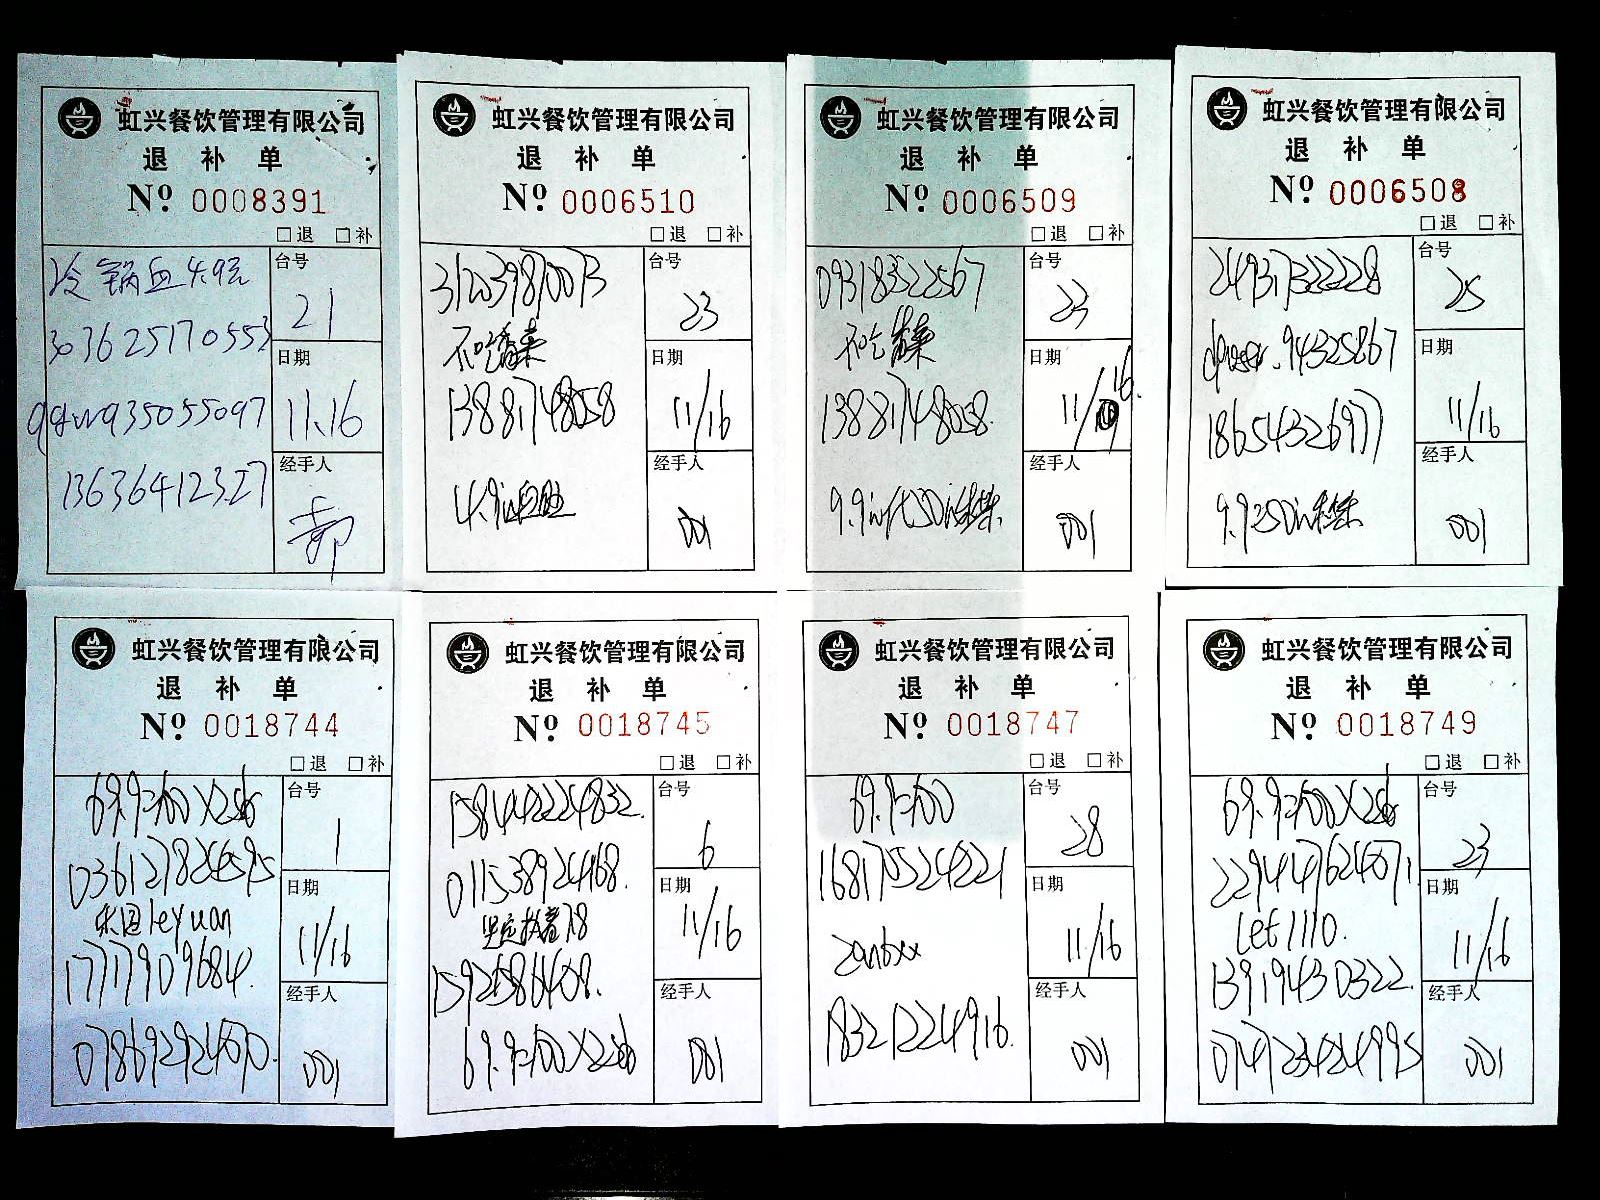 虹兴餐饮管理有限公司
退 补 单
Nº 0008391
□退 □补
冷锅血4.9元
3036251770553
935055097
13636412327
台号
21
日期
11.16
经手人
虹兴餐饮管理有限公司
退 补 单
Nº 0006510
□退 □补
不吃香菜
13881748058
台号
23
日期
11/16
经手人
001
虹兴餐饮管理有限公司
退 补 单
Nº 0006509
□退 □补
09318322567
不吃香菜
13881748058.
台号
23
日期
11/16.
经手人
001
虹兴餐饮管理有限公司
退 补 单
Nº 0006508
□退 □补
24937322228
94325867
18654326977
台号
25
日期
11/16
经手人
001
虹兴餐饮管理有限公司
退 补 单
Nº 0018744
□退 □补
69.9=100X2
乐园leyuan
17717909684.
台号
1
日期
11/16
经手人
001
虹兴餐饮管理有限公司
退 补 单
Nº 0018745
□退 □补
011538924468.
坚定执着78
15926586408.
69.9=100X2
台号
6
日期
11/16
经手人
001
虹兴餐饮管理有限公司
退 补 单
Nº 0018747
□退 □补
69.9=100
168175524221
zanbxx
18321224916.
台号
28
日期
11/16
经手人
001
虹兴餐饮管理有限公司
退 补 单
Nº 0018749
□退 □补
69.9=100X2
2294447624071.
Let1110.
13919430322.
台号
23
日期
11/16
经手人
001